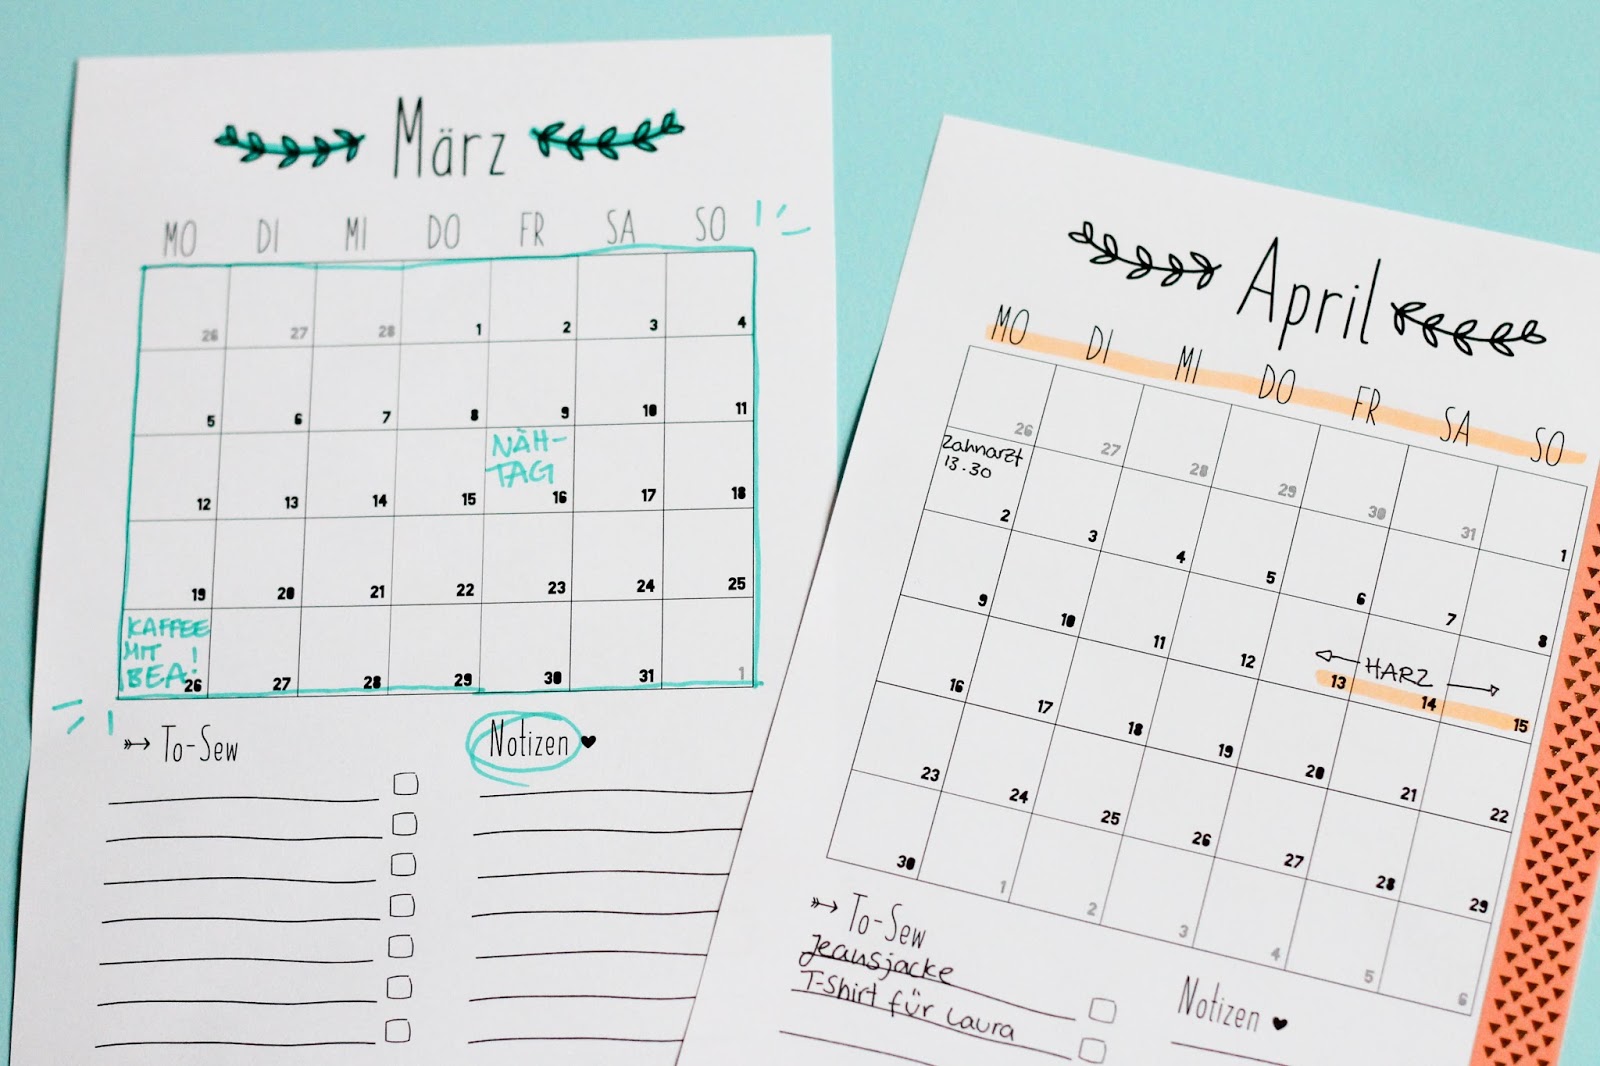 März
MO DI MI DO FR SA SO
26 27 28 1 2 3 4
5 6 7 8 9 10 11
NÄH-
TAG
12 13 14 15 16 17 18
19 20 21 22 23 24 25
KAFFEE
MIT
BEA!
26 27 28 29 30 31 1
To-Sew
Notizen
April
MO DI MI DO FR SA SO
26 27 28 29 30 31 1
Zahnarzt
13.30
2 3 4 5 6 7 8
HARZ
9 10 11 12 13 14 15
16 17 18 19 20 21 22
23 24 25 26 27 28 29
30 1 2 3 4 5 6
To-Sew
Jeansjacke
T-Shirt für Laura
Notizen